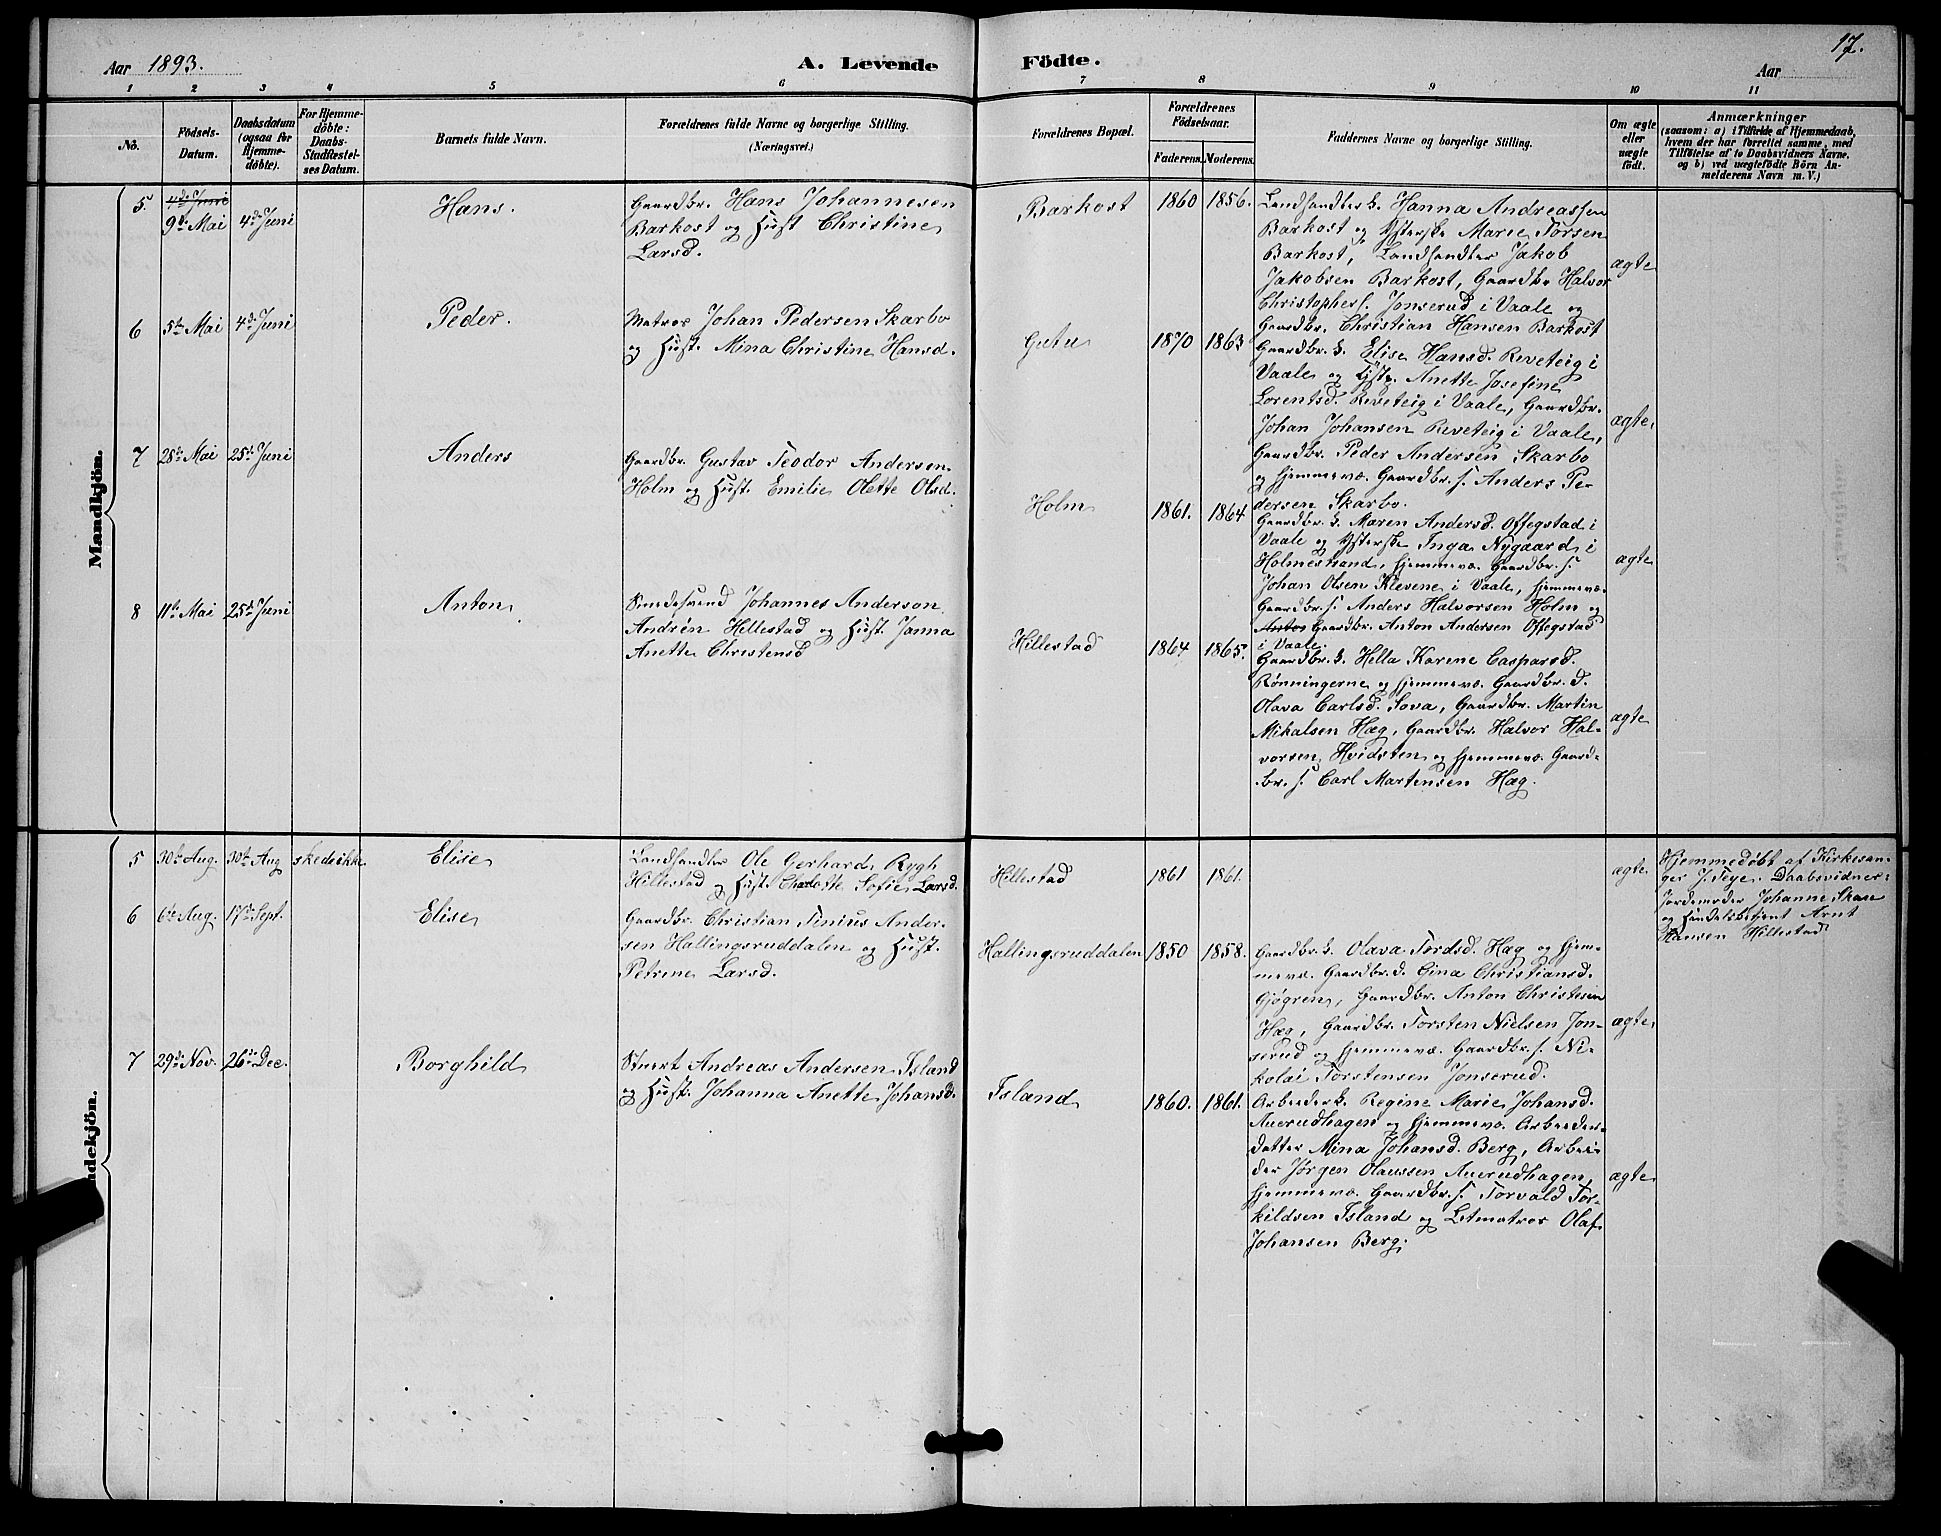 Aar 1893.
A. Levende Födte.
Aar
17.
1 2 3 4 5 6 7 8 9 10 11
No.
Födsels-
Datum.
Daabsdatum
(ogsaa for
Hjemme-
döbte).
For Hjemme-
döbte:
Daabs-
Stadfæstel-
ses Datum.
Barnets fulde Navn.
Forældrenes fulde Navne og borgerlige Stilling.
(Næringsvei.)
Forældrenes Bopæl.
Forældrenes
Födselsaar.
Faderens. Moderens.
Faddernes Navne og borgerlige Stilling.
Om ægte
eller
uægte
födt.
Anmærkninger
(saasom: a) i Tilfælde af Hjemmedaab,
hvem der har forrettet samme, med
Tilföielse af to Daabsvidners Navne,
og b) ved uægtefödte Börn An-
melderens Navn m. V.)
Mandkjön.
5.
4de Juni
9de Mai
4de Juni
Hans.
Gaardbr. Hans Johannesen
Barkost og Hust Christine
Larsd.
Barkost
1860
1856.
Landhandlerk. Hanna Andreassen
Barkost og Ysterske Marie Torsen
Barkost, Landhandler Jakob
Jakobsen Barkost, Gaardbr Halvor
Christophers. Jonserud i Vaale og
Gaardbr. Christian Hansen Barkost
ægte
6
5te Mai
4de Juni
Peder.
Matros Johan Pedersen Skarbo
og Hust. Mina Christine Hansd.
Gutu
1870
1863
Gaardbr. k. Elise Hansd. Reveteig i
Vaale og Tjstp. Anette Josefine
Lorentsd. Reveteig i Vaale, Gaardbr.
Johan Johansen Reveteig i Vaale,
Gaardbr. Peder Andersen Skarbo
og hjemmevæ. Gaardbr. s. Anders Pe-
dersen Skarbo.
ægte
7
28de Mai
25de Juni
Anders
Gaardbr. Gustav Teodor Andersen
Holm og Hust. Emilie Olette Olsd.
Holm
1861.
1864
Gaardbr. k. Maren Andersd. Offegstad i
Vaale og Ysterske Inga Nygaard i
Holmestrand, hjemmevæ. Gaardbr. s.
Johan Olsen Klevene i Vaale, hjemmevæ.
Gaardbr. s. Anders Halvorsen Holm og
Anton Gaardbr. Anton Andersen Offegstad
i Vaale.
ægte
8
11te Mai
25de Juni
Anton
Smedesvend Johannes Anderson
Andrén Hillestad og Hust. Janna
Anette Christensd
Hillestad
1864
1865.
Gaardbr. k. Hella Karene Caspersd.
Rønningerne og hjemmevæ. Gaardbr. d.
Olava Carlsd. Sova, Gaardbr. Martin
Mikalsen Hæg, Gaardbr. Halvor Hal-
vorsen Hvidsten og hjemmevæ. Gaard-
br. s. Carl Martensen Hæg.
ægte
ndekjön.
5
30te Aug.
30te Aug
skede ikke
Elise
Landhandler Ole Gerhard Rygh
Hillestad og Hust. Charlotte Sofie Larsd.
Hillestad
1861
1861.
ægte.
Hjemmedöbt af Kirkesan-
ger J. Teye. Daabsvidner:
Jordemoder Johanne Skare
og Handelsbetjent Arnt
Hansen Hillestad
6
6te Aug.
17de Sept.
Elise
Gaardbr. Christian Tinius Ander-
sen Hallingsruddalen og Hust.
Petrine Larsd.
Hallingsruddalen
1850
1858.
Gaardbr. k. Olava Tordsd. Hæg og hjem-
mevæ. Gaardbr. d. Gina Christiansd.
Gjøgren, Gaardbr. Anton Christesen
Hæg, Gaardbr. Torsten Nielsen Jon-
serud og hjemmevæ. Gaardbr. s. Ni-
kolai Torstensen Jonserud.
ægte
7
29de Nov.
26de Dec.
Borghild
Stuert Andreas Andersen Island
og Hust. Johanna Anette Johansd.
Island
1860.
1861.
Arbeiderk. Regine Marie Johansd.
Auerudhagen og hjemmevæ. Arbeider-
datter Mina Johansd. Berg, Arbei-
der Jørgen Olaussen Auerudhagen,
hjemmevæ. Gaardbr. s. Torvald Tor-
kildsen Island og Letmatros Olaf
Johansen Berg.
ægte